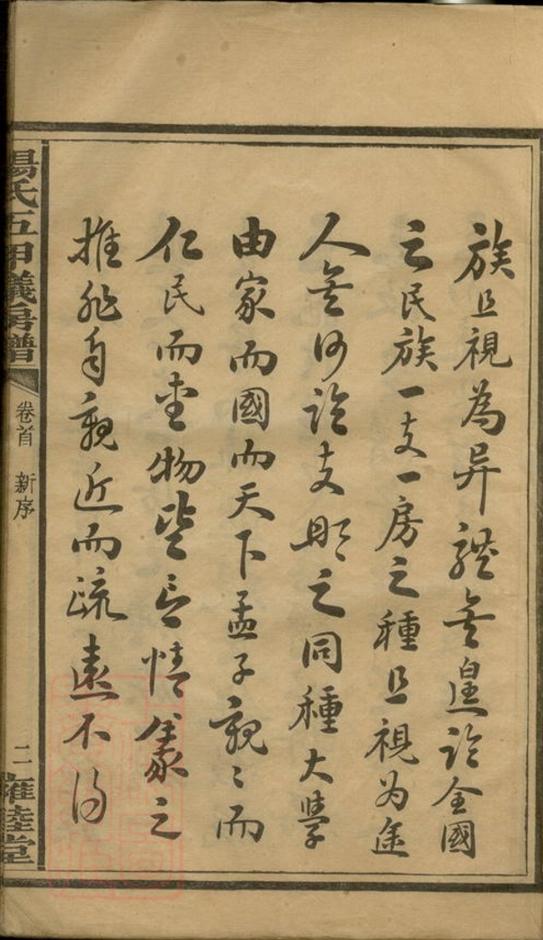 族且視為异視無遑論全國
之民族一支一房之種且視為途
人無何論支那之同種大學
由家而國而天下孟子親〻而
仁民而愛物皆言情義之
推非自親近而疏遠不得
楊氏五甲儀房譜 卷首 新序 二 雍睦堂